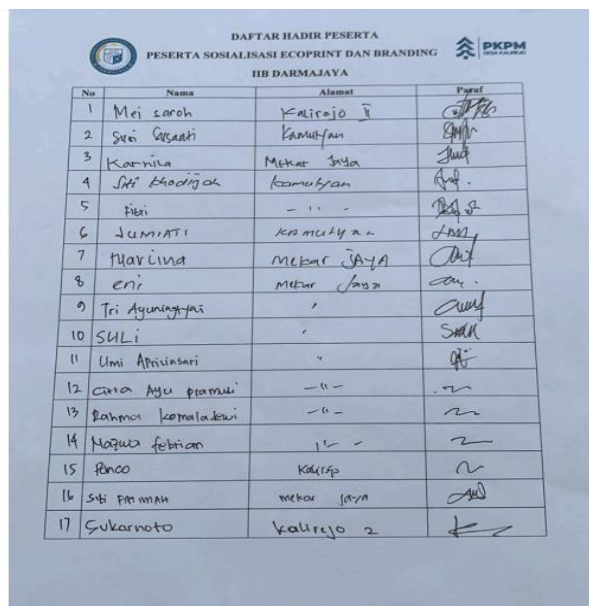 DAFTAR HADIR PESERTA
PESERTA SOSIALISASI ECOPRINT DAN BRANDING
IIB DARMAJAYA
PKPM
DESA KALIREJO
No Nama Alamat Paraf
1 Mei saroh Kalirejo II
2 Susanti Kamulyan
3 Karnila Mekar Jaya
4 Siti Khodijah kamulyan
5 Fitri - '' -
6 JUMIATI Kamulyan
7 Marlina mekar JAYA
8 eni Mekar Jaya
9 Tri Ayuningtyas '
10 SULi '
11 Umi Apriviasari "
12 Citra Ayu pramuti -"-
13 Rahma komaladewi -"-
14 Nazwa febrian " -
15 Ponco Kalirejo
16 Siti FATIMAH mekar jaya
17 Sukarnoto Kalirejo 2